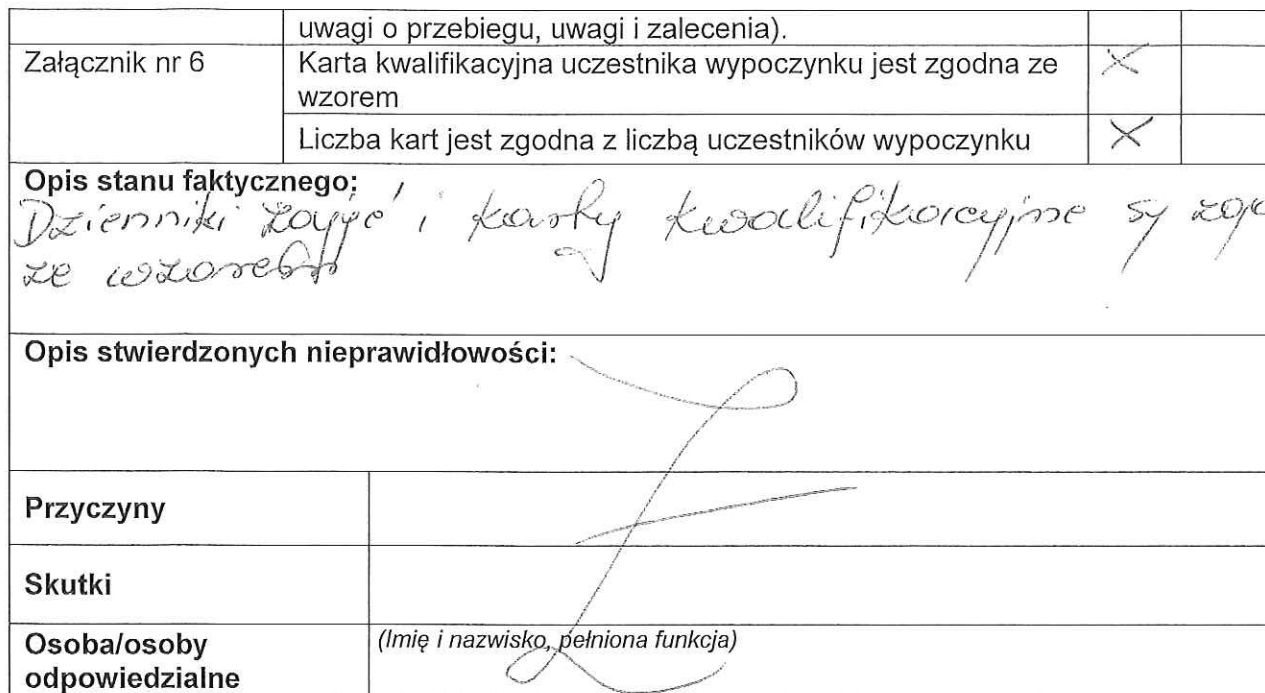 uwagi o przebiegu, uwagi i zalecenia).
Załącznik nr 6
Karta kwalifikacyjna uczestnika wypoczynku jest zgodna ze
wzorem
Liczba kart jest zgodna z liczbą uczestników wypoczynku
Opis stanu faktycznego:
Dzienniki zajęć i karty kwalifikacyjne są
ze wzorem
Opis stwierdzonych nieprawidłowości:
Przyczyny
Skutki
Osoba/osoby
odpowiedzialne
(Imię i nazwisko, pełniona funkcja)